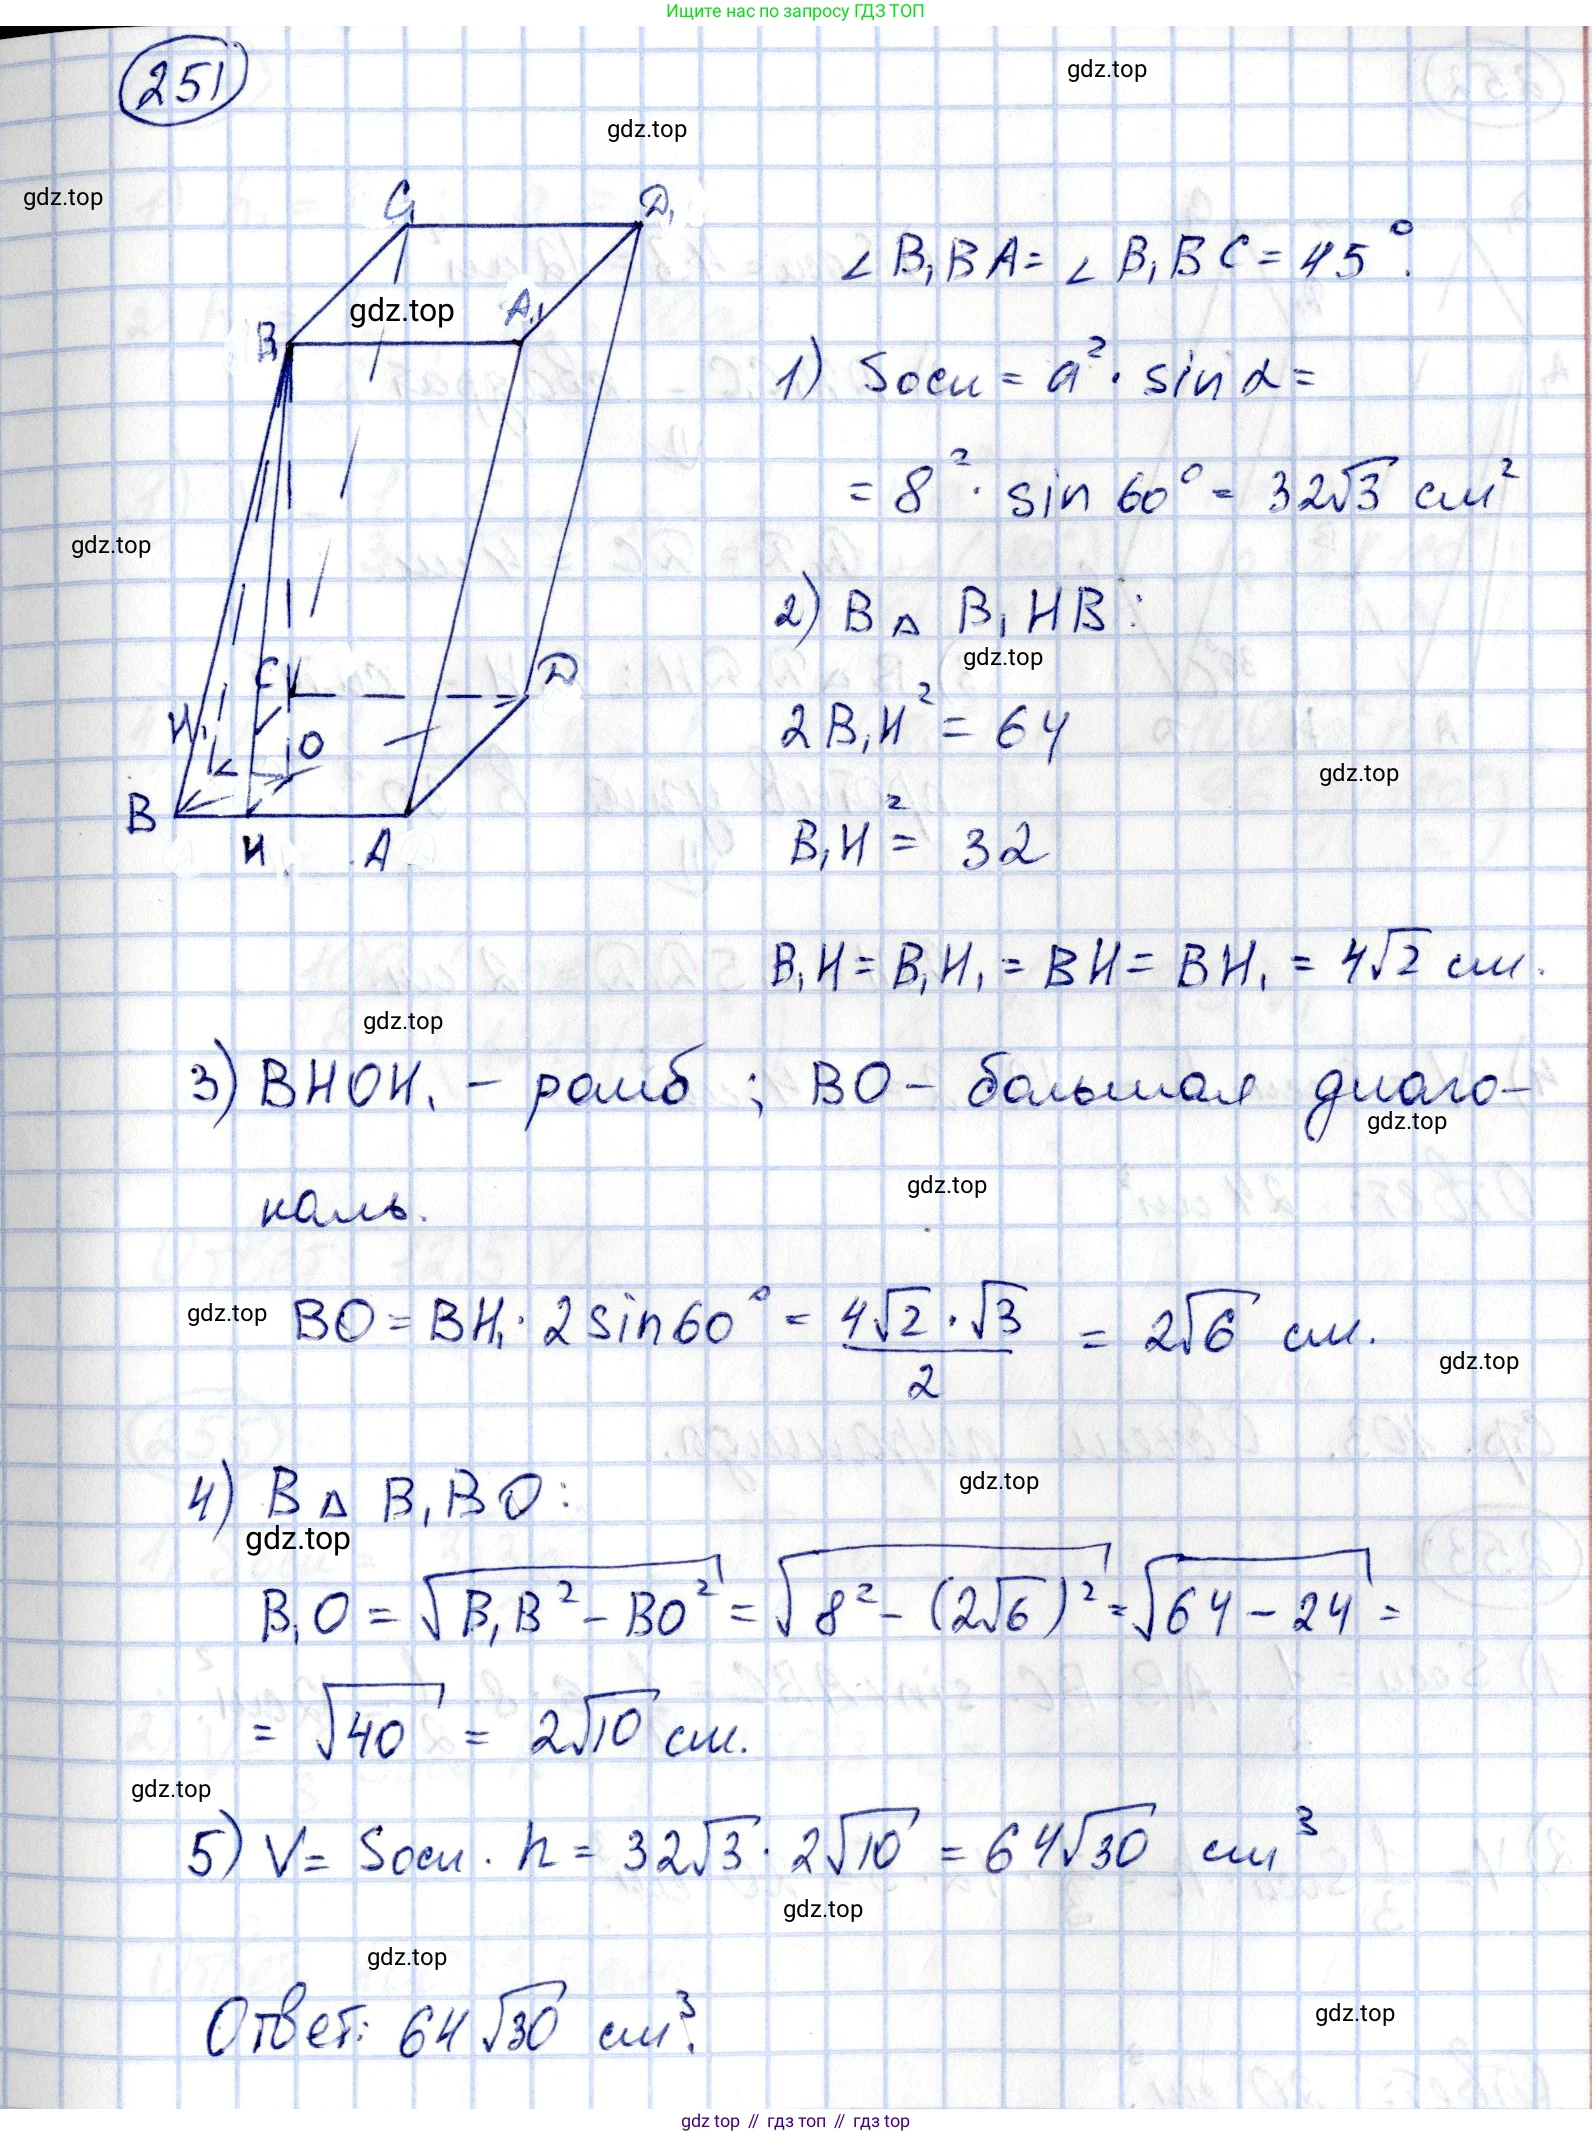 Ищите нас по запросу ГДЗ ТОП
251
gdz.top
gdz.top
gdz.top
C₁ D₁
B A₁
gdz.top
C D
H₁ O
B H A
∠ B₁BA = ∠ B₁BC = 45°.
1) Sосн = a² · sin α =
= 8² · sin 60° = 32√3 см²
gdz.top
2) В △ B₁HB:
gdz.top
2B₁H² = 64
gdz.top
B₁H² = 32
B₁H = B₁H₁ = BH = BH₁ = 4√2 см.
gdz.top
3) BHOH₁ – ромб ; BO – большая диаго-
gdz.top
gdz.top
наль.
gdz.top
BO = BH₁ · 2 sin 60° = 4√2 · √3 / 2 = 2√6 см.
gdz.top
4) В △ B₁BO:
gdz.top
gdz.top
B₁O = √(B₁B² – BO²) = √(8² – (2√6)²) = √(64 – 24) =
= √40 = 2√10 см.
gdz.top
5) V = Sосн · h = 32√3 · 2√10 = 64√30 см³
gdz.top
gdz.top
Ответ: 64√30 см³.
gdz.top
gdz.top // гдз топ // гдз top